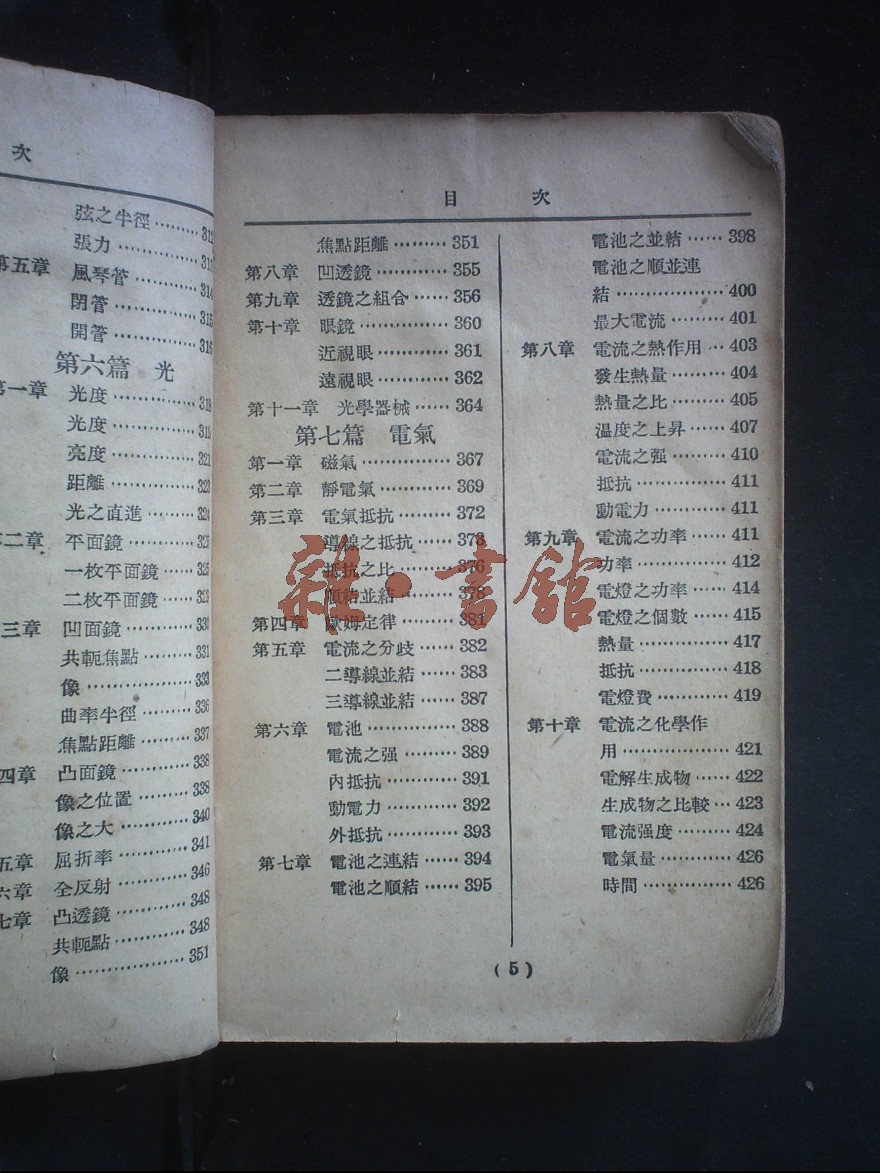 次
弦之半徑………312
張力…………313
第五章 風琴管…………314
閉管…………315
開管…………316
第六篇 光
第一章 光度…………318
光度…………319
亮度…………321
距離…………323
光之直進……324
第二章 平面鏡…………325
一枚平面鏡……
二枚平面鏡……
三章 凹面鏡…………330
共軛焦點………331
像………………333
曲率半徑………336
焦點距離………337
四章 凸面鏡…………338
像之位置………338
像之大…………340
五章 屈折率…………341
六章 全反射…………346
七章 凸透鏡…………348
共軛點…………348
像………………351
目次
焦點距離………351
第八章 凹透鏡…………355
第九章 透鏡之組合……356
第十章 眼鏡……………360
近視眼…………361
遠視眼…………362
第十一章 光學器械……364
第七篇 電氣
第一章 磁氣……………367
第二章 靜電氣…………369
第三章 電氣抵抗………372
導線之抵抗……373
抵抗之比………376
順結並結………378
第四章 歐姆定律………381
第五章 電流之分歧……382
二導線並結……383
三導線並結……387
第六章 電池……………388
電流之强………389
內抵抗…………391
動電力…………392
外抵抗…………393
第七章 電池之連結……394
電池之順結……395
電池之並結……398
電池之順並連
結………………400
最大電流………401
第八章 電流之熱作用…403
發生熱量………404
熱量之比………405
温度之上昇……407
電流之强………410
抵抗……………411
動電力…………411
第九章 電流之功率……411
功率……………412
電燈之功率……414
電燈之個數……415
熱量……………417
抵抗……………418
電燈費…………419
第十章 電流之化學作
用………………421
電解生成物……422
生成物之比較…423
電流强度………424
電氣量…………426
時間……………426
(5)
雜·書館